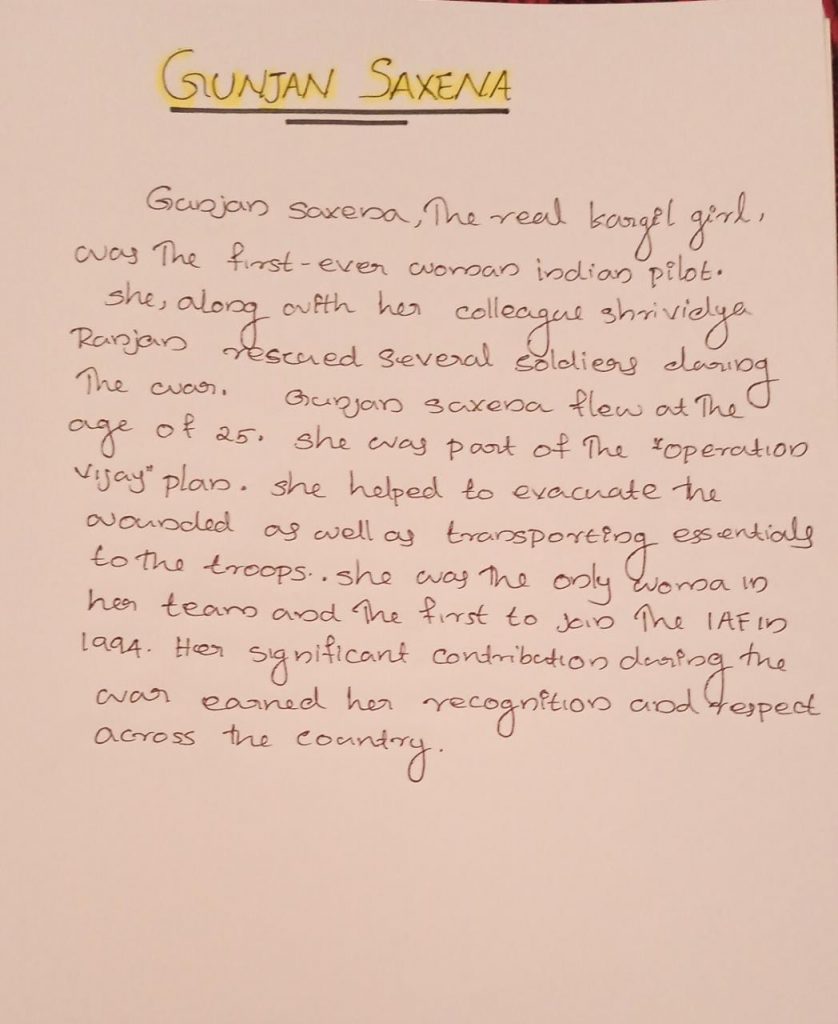 GUNJAN SAXENA
Gunjan saxena, The real kargil girl,
was The first-ever woman indian pilot.
she, along with her colleague shrividya
Ranjan rescued several soldiers during
The war. Gunjan saxena flew at The
age of 25. she was part of The "operation
vijay" plan. she helped to evacuate the
wounded as well as transporting essentials
to the troops.. she was the only woma in
her team and The first to join The IAF in
1994. Her significant contribution during the
war earned her recognition and respect
across the country.